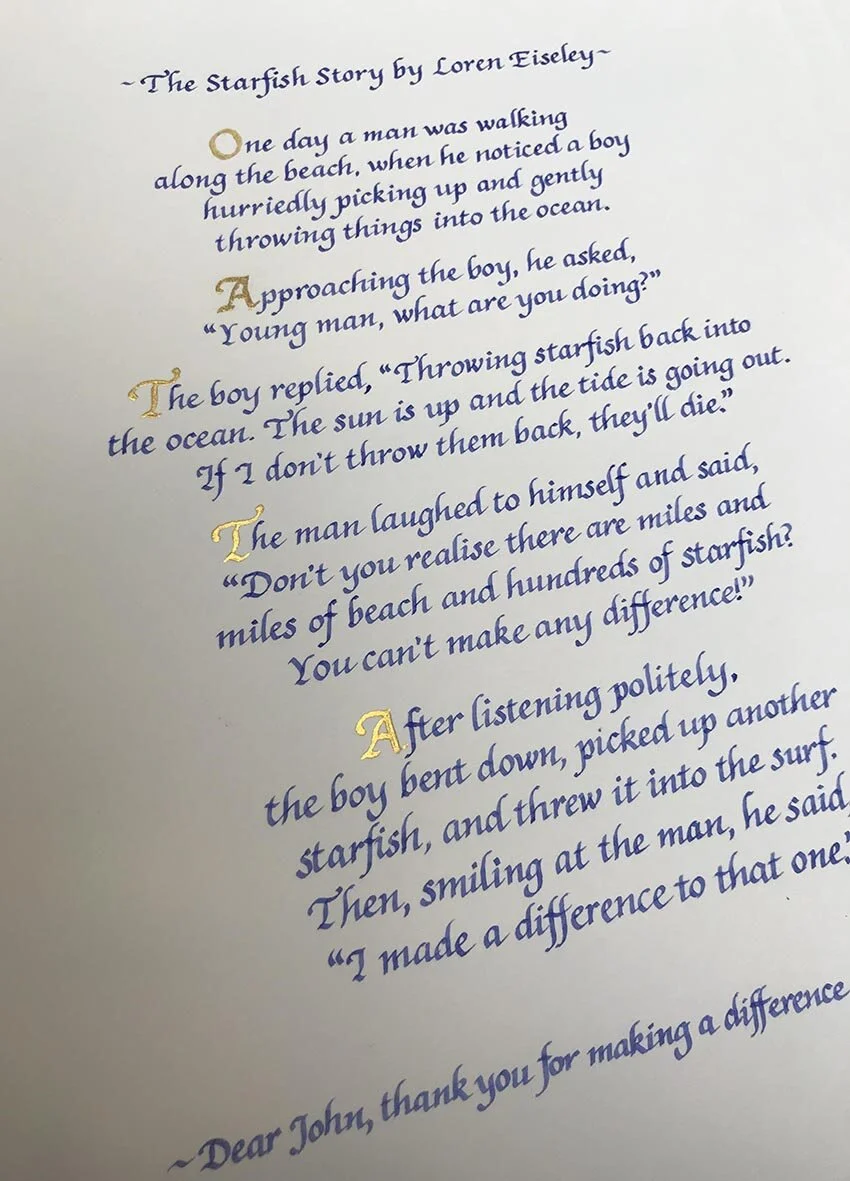 ~The Starfish Story by Loren Eiseley~
One day a man was walking
along the beach, when he noticed a boy
hurriedly picking up and gently
throwing things into the ocean.
Approaching the boy, he asked,
“Young man, what are you doing?”
The boy replied, “Throwing starfish back into
the ocean. The sun is up and the tide is going out.
If I don't throw them back, they'll die.”
The man laughed to himself and said,
“Don't you realise there are miles and
miles of beach and hundreds of starfish?
You can't make any difference!”
After listening politely,
the boy bent down, picked up another
starfish, and threw it into the surf.
Then, smiling at the man, he said,
“I made a difference to that one.”
~Dear John, thank you for making a difference